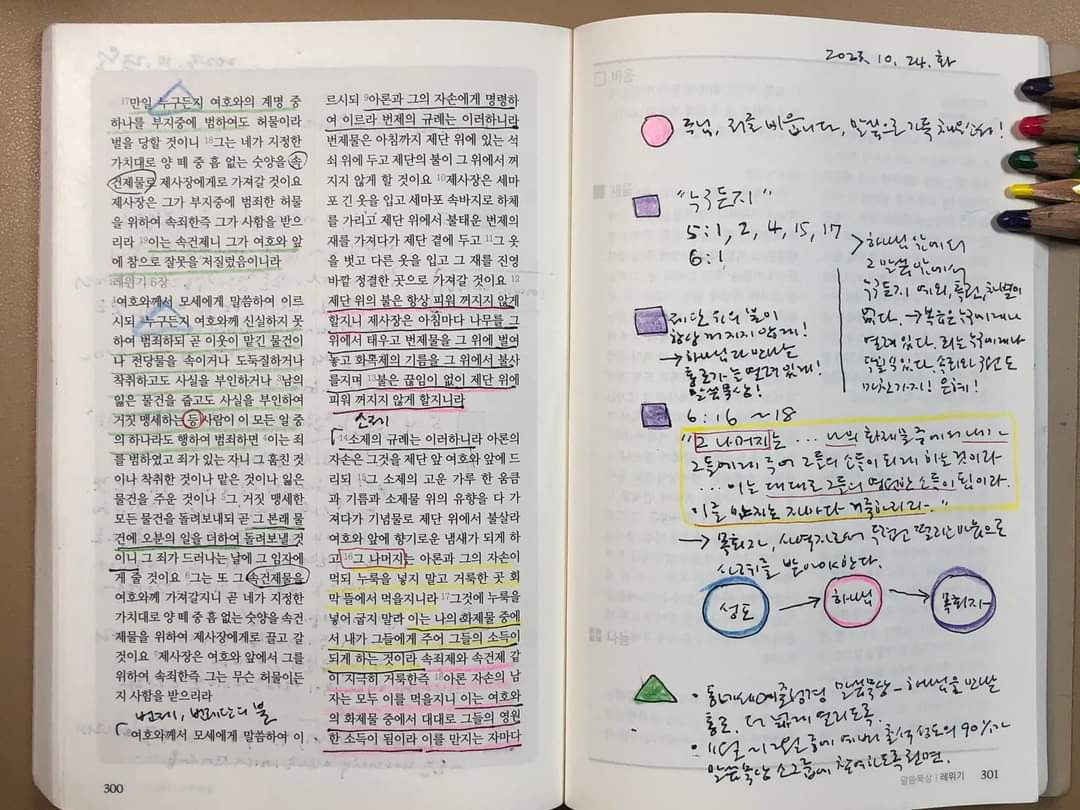 17만일 누구든지 여호와의 계명 중
하나를 부지중에 범하여도 허물이라
벌을 당할 것이니 18그는 네가 지정한
가치대로 양 떼 중 흠 없는 숫양을 속
건제물로 제사장에게로 가져갈 것이요
제사장은 그가 부지중에 범죄한 허물
을 위하여 속죄한즉 그가 사함을 받으
리라 19이는 속건제니 그가 여호와 앞
에 참으로 잘못을 저질렀음이니라
레위기 6장
여호와께서 모세에게 말씀하여 이르
시되 2누구든지 여호와께 신실하지 못
하여 범죄하되 곧 이웃이 맡긴 물건이
나 전당물을 속이거나 도둑질하거나
착취하고도 사실을 부인하거나 3남의
잃은 물건을 줍고도 사실을 부인하여
거짓 맹세하는 등 사람이 이 모든 일 중
의 하나라도 행하여 범죄하면 4이는 죄
를 범하였고 죄가 있는 자니 그 훔친 것
이나 착취한 것이나 맡은 것이나 잃은
물건을 주운 것이나 5그 거짓 맹세한
모든 물건을 돌려보내되 곧 그 본래 물
건에 오분의 일을 더하여 돌려보낼 것
이니 그 죄가 드러나는 날에 그 임자에
게 줄 것이요 6그는 또 그 속건제물을
여호와께 가져갈지니 곧 네가 지정한
가치대로 양 떼 중 흠 없는 숫양을 속건
제물을 위하여 제사장에게로 끌고 갈
것이요 7제사장은 여호와 앞에서 그를
위하여 속죄한즉 그는 무슨 허물이든
지 사함을 받으리라
번제, 번제단의 불
여호와께서 모세에게 말씀하여 이
300
르시되 9아론과 그의 자손에게 명령하
여 이르라 번제의 규례는 이러하니라
번제물은 아침까지 제단 위에 있는 석
쇠 위에 두고 제단의 불이 그 위에서 꺼
지지 않게 할 것이요 10제사장은 세마
포 긴 옷을 입고 세마포 속바지로 하체
를 가리고 제단 위에서 불태운 번제의
재를 가져다가 제단 곁에 두고 11그 옷
을 벗고 다른 옷을 입고 그 재를 진영
바깥 정결한 곳으로 가져갈 것이요 12
제단 위의 불은 항상 피워 꺼지지 않게
할지니 제사장은 아침마다 나무를 그
위에서 태우고 번제물을 그 위에 벌여
놓고 화목제의 기름을 그 위에서 불사
를지며 13불은 끊임이 없이 제단 위에
피워 꺼지지 않게 할지니라
소제
14소제의 규례는 이러하니라 아론의
자손은 그것을 제단 앞 여호와 앞에 드
리되 15그 소제의 고운 가루 한 움큼
과 기름과 소제물 위의 유향을 다 가
져다가 기념물로 제단 위에서 불살라
여호와 앞에 향기로운 냄새가 되게 하
고 16그 나머지는 아론과 그의 자손이
먹되 누룩을 넣지 말고 거룩한 곳 회
막 뜰에서 먹을지니라 17그것에 누룩을
넣어 굽지 말라 이는 나의 화제물 중에
서 내가 그들에게 주어 그들의 소득이
되게 하는 것이라 속죄제와 속건제 같
이 지극히 거룩한즉 18아론 자손의 남
자는 모두 이를 먹을지니 이는 여호와
의 화제물 중에서 대대로 그들의 영원
한 소득이 됨이라 이를 만지는 자마다
2023. 10. 24. 화
비움
주님, 저를 비웁니다, 말씀으로 가득 채우소서!
채움
"누구든지"
5:1, 2, 4, 15, 17
6:1
> 하나님 앞에서
그 말씀 앞에서
누구든지 예외, 특권, 차별이
없다. → 복음은 누구에게나
열려 있다. 죄는 누구에게나
있다. 은혜!
제단 위의 불이
항상 꺼지지 않게!
→ 하나님과 만나는
통로가 늘 열려 있게!
말씀묵상!
6:16 ~18
"그 나머지는 ... 나의 화제물 중에서 내가
그들에게 주어 그들의 소득이 되게 하는 것이라
... 이는 대대로 그들의 영원한 소득이 됨이라.
이를 만지는 자마다 거룩하리라."
→ 목회자, 사역자로서 마음으로
받아야 한다.
성도 → 하나님 → 목회자
나눔
• 말씀묵상 - 하나님을 만날
통로. 더 넓게 열리도록.
• 11월 중에 예배 출석 성도의 90%가
말씀묵상 소그룹에 참여하도록
말씀묵상 | 레위기 301